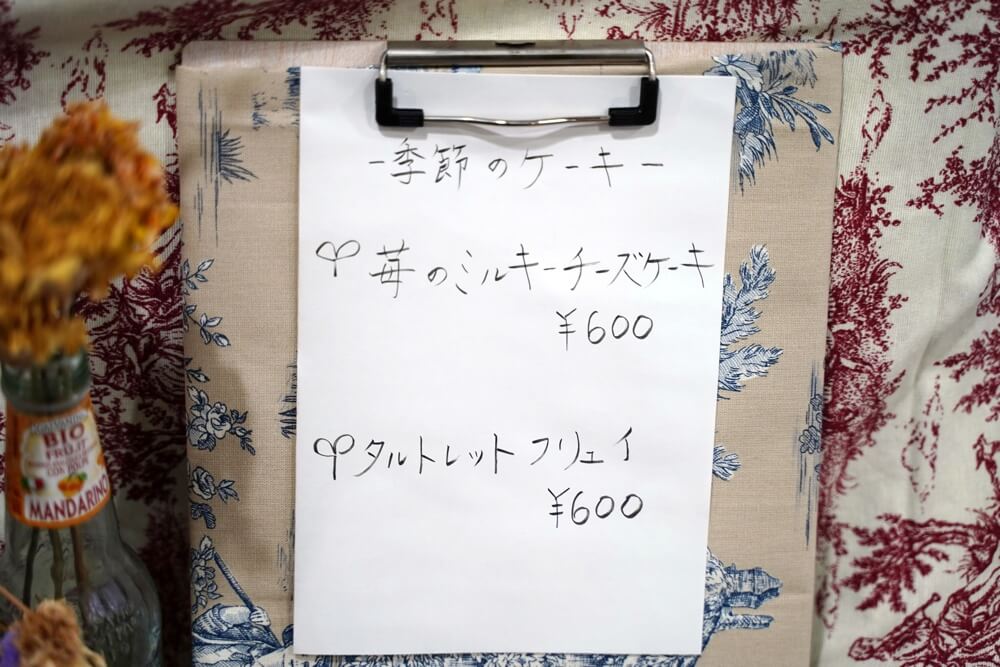 -季節のケーキ-
苺のミルキーチーズケーキ
¥600
タルトレット フリュイ
¥600
BIO
MANDARINO